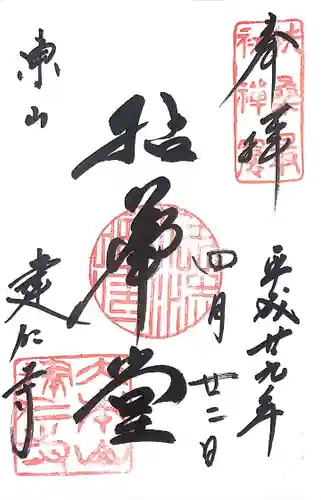 奉拝
平成廿九年
四月廿二日
拈華堂
東山
建仁寺
扶桑最
初禅窟